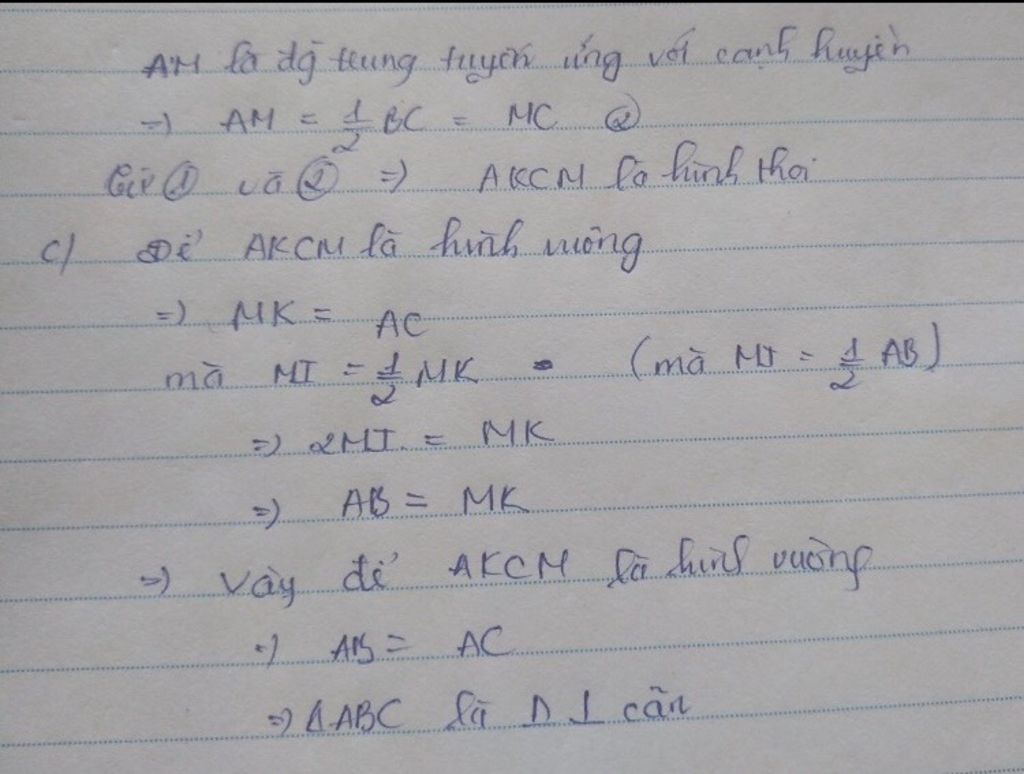 AM là đg trung tuyến ứng với cạnh huyền
=> AM = 1/2 BC = MC ②
Từ ① và ② => AKCM là hình thoi
c) Để AKCM là hình vuông
=> MK = AC
mà MI = 1/2 MK (mà MI = 1/2 AB)
=> 2MI = MK
=> AB = MK
=> Vậy để AKCM là hình vuông
=> AB = AC
=> ΔABC là Δ ⊥ cân